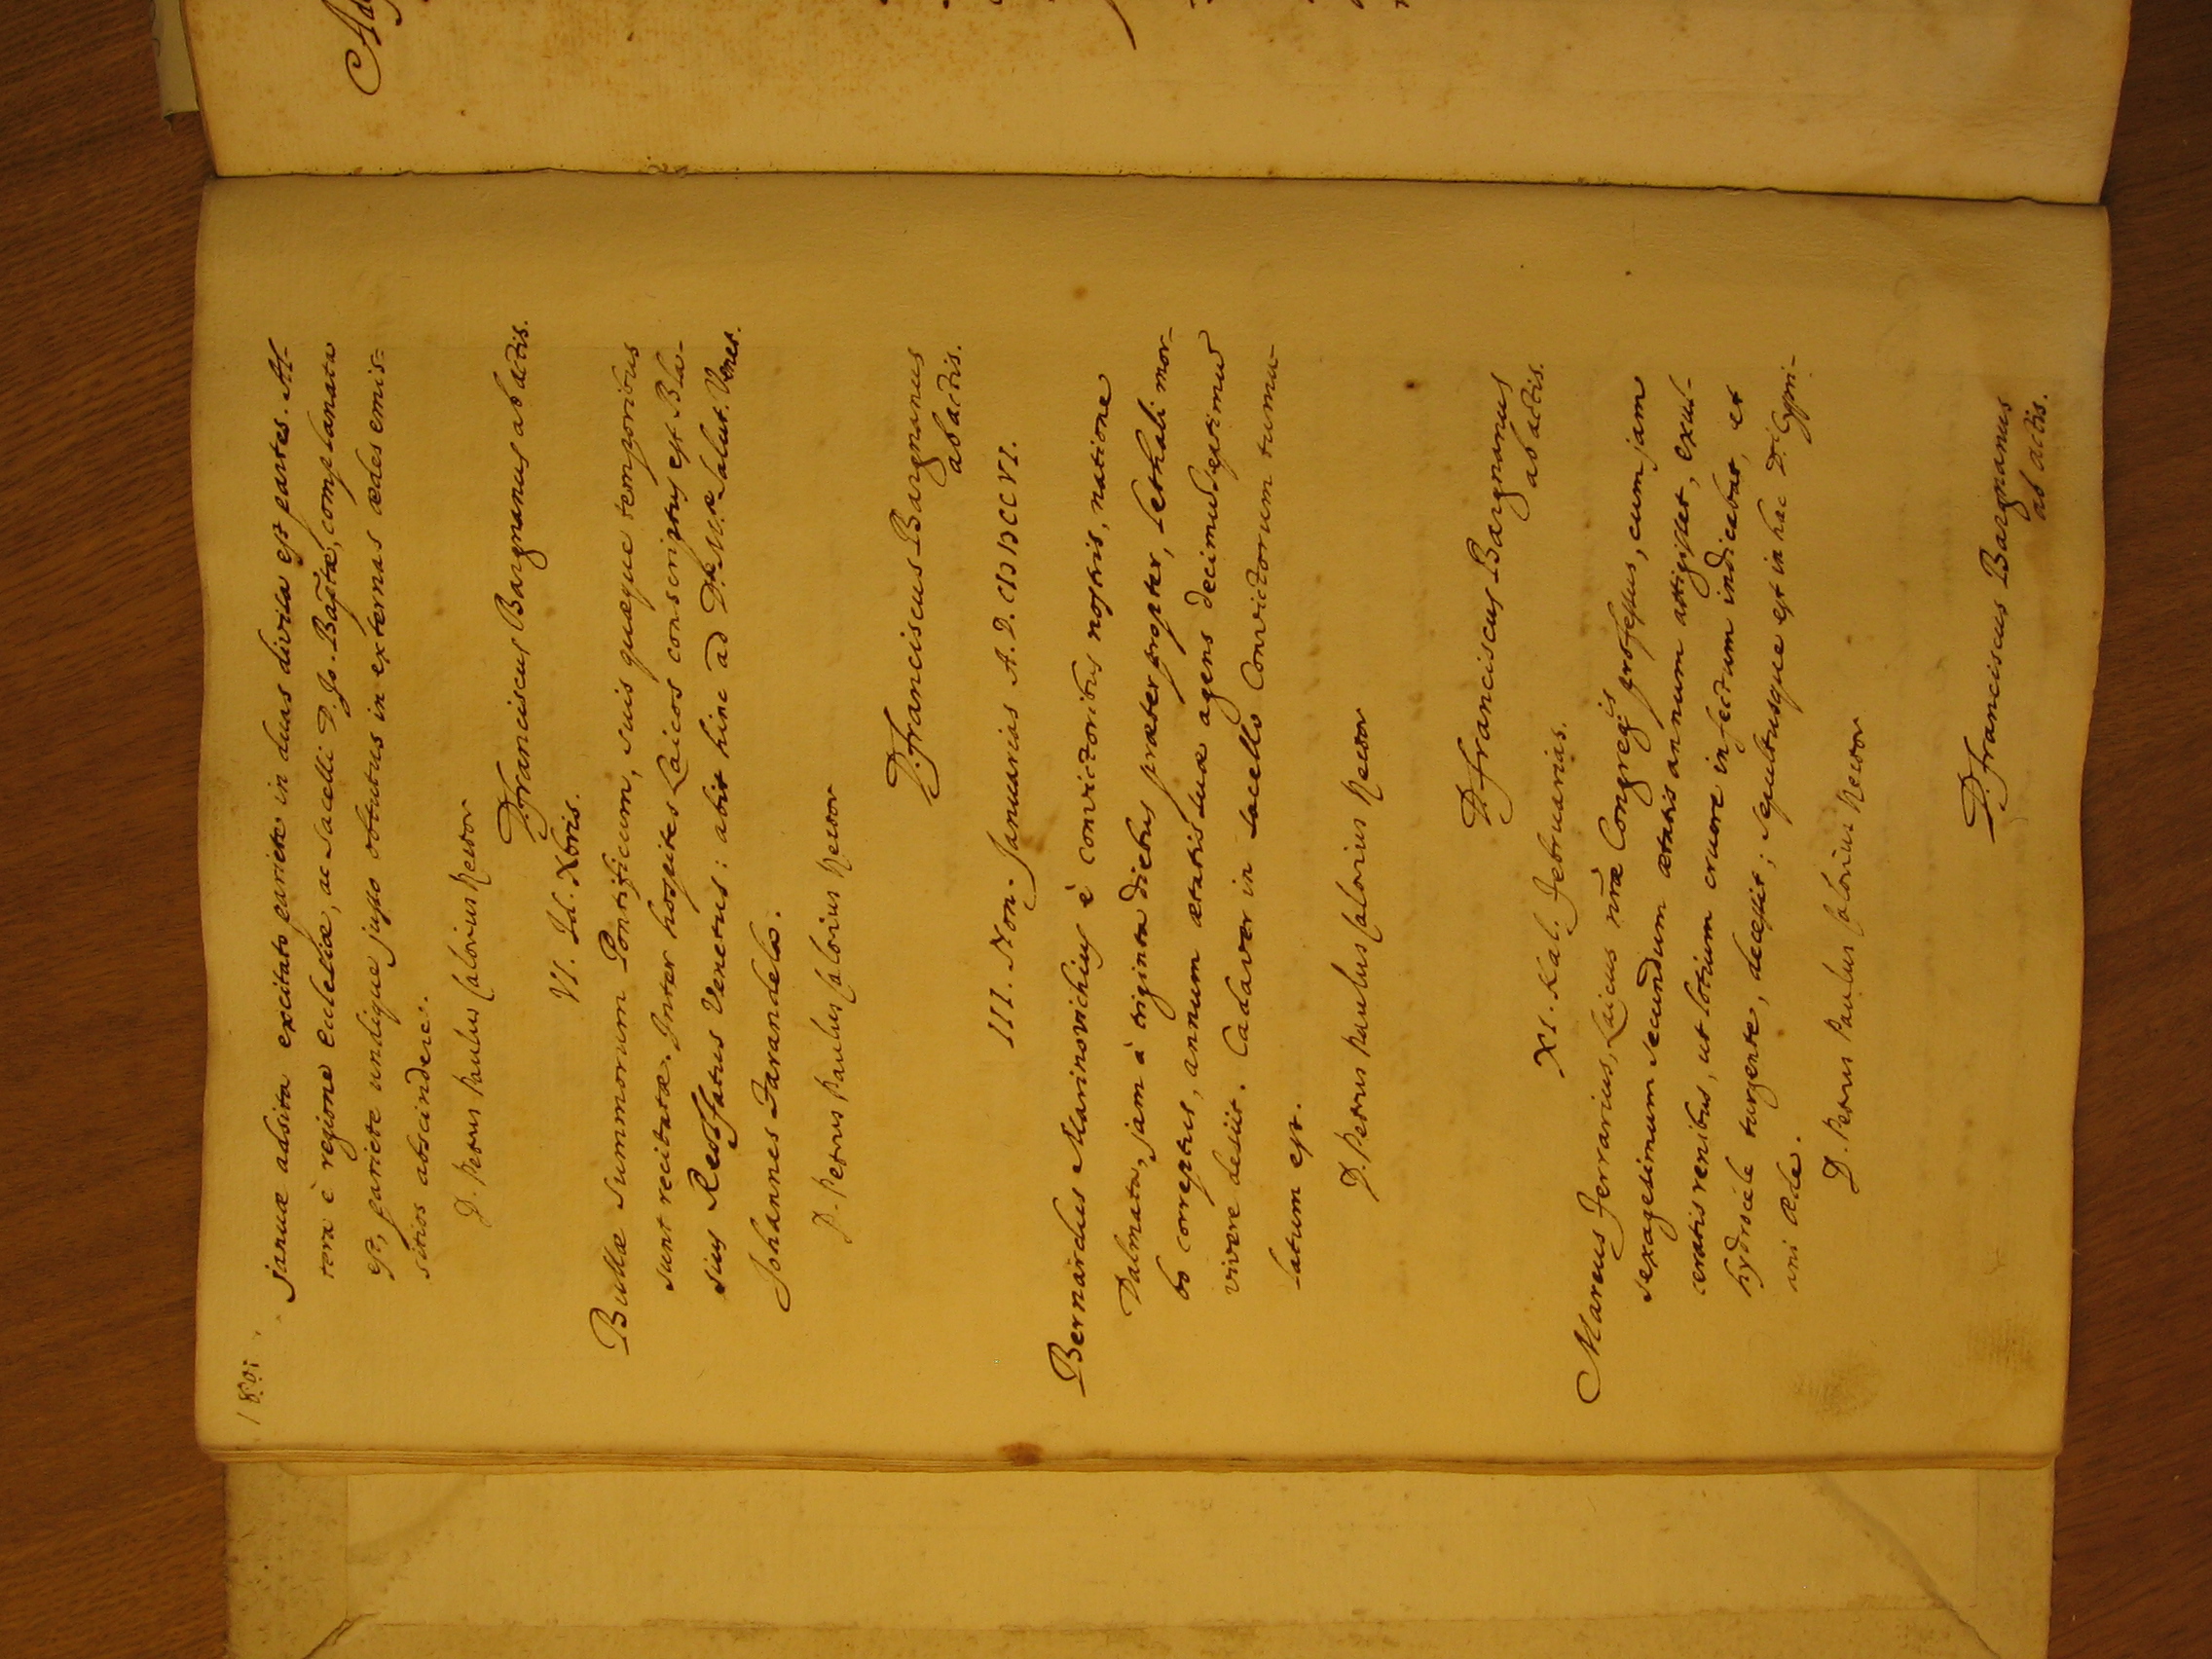 180i
januæ adsita excitato pariete in duas divisa est partes. Al-
tera è regione ecclesiæ, ac sacelli D. Jo. Baptæ, complanata
est, pariete undique justo obtutus in externas ædes emis-
sitios abscindere.
D. Petrus Paulus Calorius Rector
D. Franciscus Bargnanus ab actis.
VI. Id. Xbris.
Bullæ Summorum Pontificum, suis quæque temporibus
sunt recitatæ. Inter hospites Laicos conscriptus est Bla-
sius Venetus: abit hinc ad D. Mæ Salut. Venet.
Johannes Farandela.
D. Petrus Paulus Calorius Rector
D. Franciscus Bargnanus
ab actis.
III. Non. Januarias A. D. CIƆIƆCCVI.
Bernardus Marinovichius è convictoribus nostris, natione
Dalmata, jam à triginta diebus præter propter, lethali mor-
bo correptus, annum ætatis suæ agens decimum septimum
vivere desiit. Cadaver in sacello Convictorum tumu-
latum est.
D. Petrus Paulus Calorius Rector
D. Franciscus Bargnanus
ab actis.
XI. Kal. Februarias.
Marcus Ferrarius, Laicus nræ Congregis professus, cum jam
sexagesimum secundum ætatis annum attigisset, exul-
ceratis renibus, ut lotium cruore infectum indicabat, et
hydrocele turgente, decessit; sepultusque est in hac Di Cypri-
ani Æde.
D. Petrus Paulus Calorius Rector
D. Franciscus Bargnanus
ab actis.